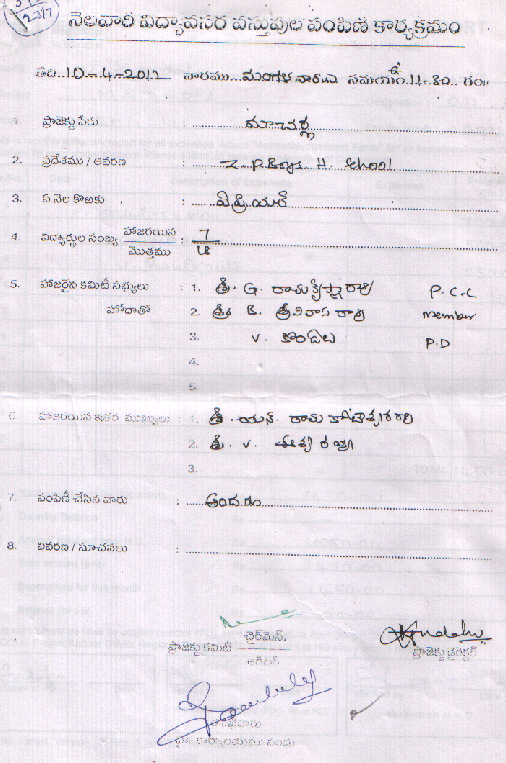 నెలవారి విద్యావసర వస్తువుల పంపిణీ కార్యక్రమం
తేది. 10-4-2012 వారము... మంగళవారం సమయం 11.30 గం.
1. ప్రాజెక్టు పేరు : మాచర్ల
2. ప్రదేశము / ఆవరణ : Z.P. Boys H. School
3. ఏ నెల కొఱకు : ఏప్రియల్
4. విద్యార్థుల సంఖ్య హాజరయిన : 7
మొత్తము
5. హాజరైన కమిటీ సభ్యులు : 1. శ్రీ. G. రామకృష్ణ రావు P.C.C
హోదాతో 2. శ్రీ B. శ్రీనివాస రావు member
3. V. కొండలు P.D
4.
5.
6. హాజరయిన ఇతర ముఖ్యులు : 1. శ్రీ. యన్. రామ
2. శ్రీ. V.
3.
7. పంపిణీ చేసిన వారు : అందరం
8. వివరణ / సూచనలు :
చైర్‌మెన్,
ప్రాజెక్టు కమిటీ
ప్రాజెక్టు డైరెక్టర్